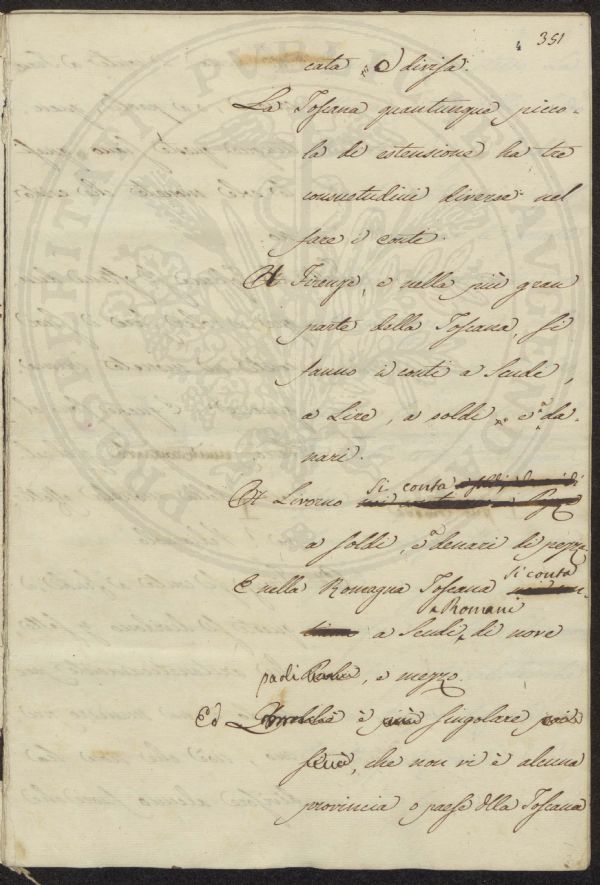 351
cata, o divisa.
La Toscana quantunque picco-
la di estensione ha tre
consuetudini diverse nel
fare i conti.
A Firenze, e nella più gran
parte della Toscana, si
fanno i conti a Scudi,
a Lire, a soldi, e a da
nari.
A Livorno si conta
a soldi, e a denari di pezze
E nella Romagna Toscana si conta
a Scudi Romani di nove
paoli, e mezzo.
Ed è singolare
che non vi è alcuna
provincia o paese dlla Toscana